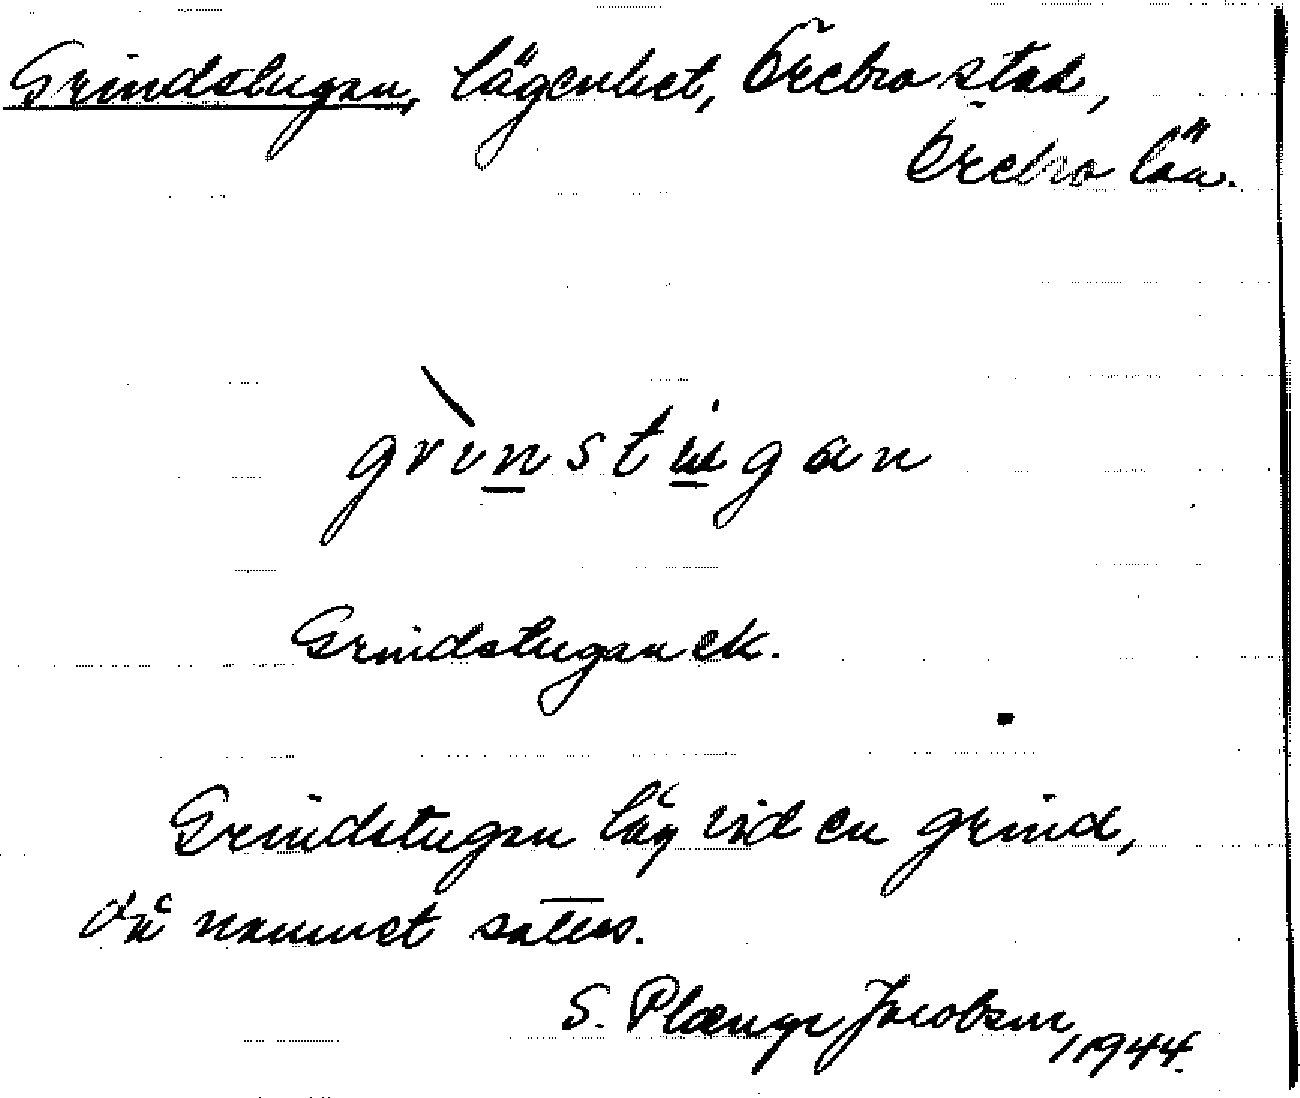 Grindstugan, lägenhet, Örebro stad,
Örebro län.
grinstugan
Grindstugan ek.
Grindstugan låg vid en grind,
då namnet sattes.
S. Plænge Jacobson, 1944.